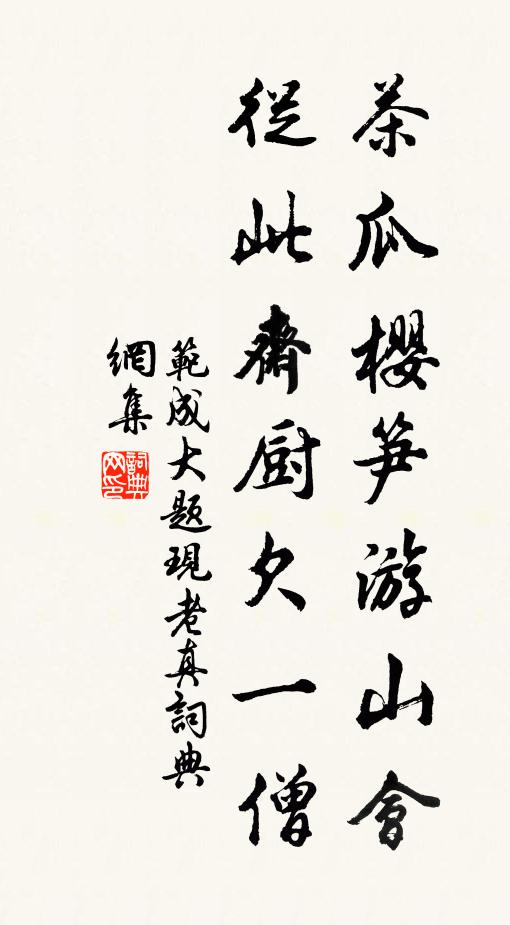 茶瓜櫻笋游山會
從此齋厨欠一僧
範成大題現老真詞典
網集
詞典网印